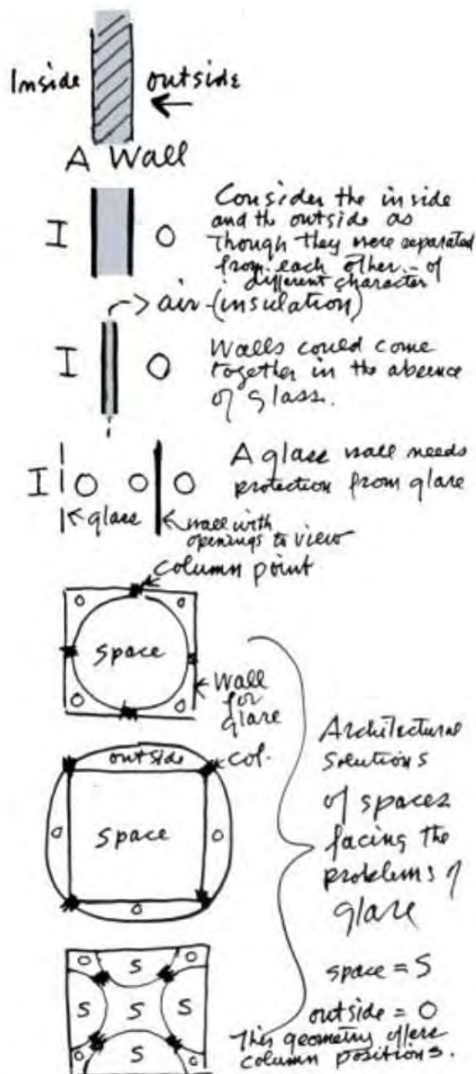 Inside outside
A Wall
I O
Consider the inside
and the outside as
though they were separated
from each other - of
different character
air (insulation)
I O
Walls could come
together in the absence
of glass.
I O O O
A glass wall needs
protection from glare
glass
wall with
openings to view
column point
o o
space
o o
Wall
for
glare
outside
col.
o space o
o
O S O
S S S
O S O
Architectural
solutions
of spaces
facing the
problems of
glare
space = S
outside = O
This geometry offers
column positions.